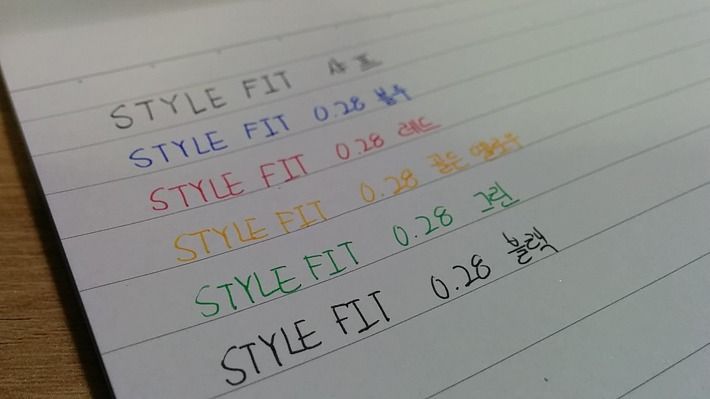 STYLE FIT 샤프
STYLE FIT 0.28 블루
STYLE FIT 0.28 레드
STYLE FIT 0.28 골든 옐로우
STYLE FIT 0.28 그린
STYLE FIT 0.28 블랙